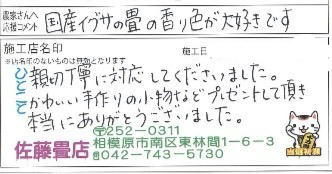 農家さんへ
応援コメント 国産イグサの畳の香り色が大好きです
施工店名印 施工日
※店名印のないものは無効となります
ひとこと
親切丁寧に対応してくださいました。
かわいい手作りの小物などプレゼントして頂き
本当にありがとうございました。
〒252-0311
佐藤畳店 相模原市南区東林間1-6-3
☎042-743-5730